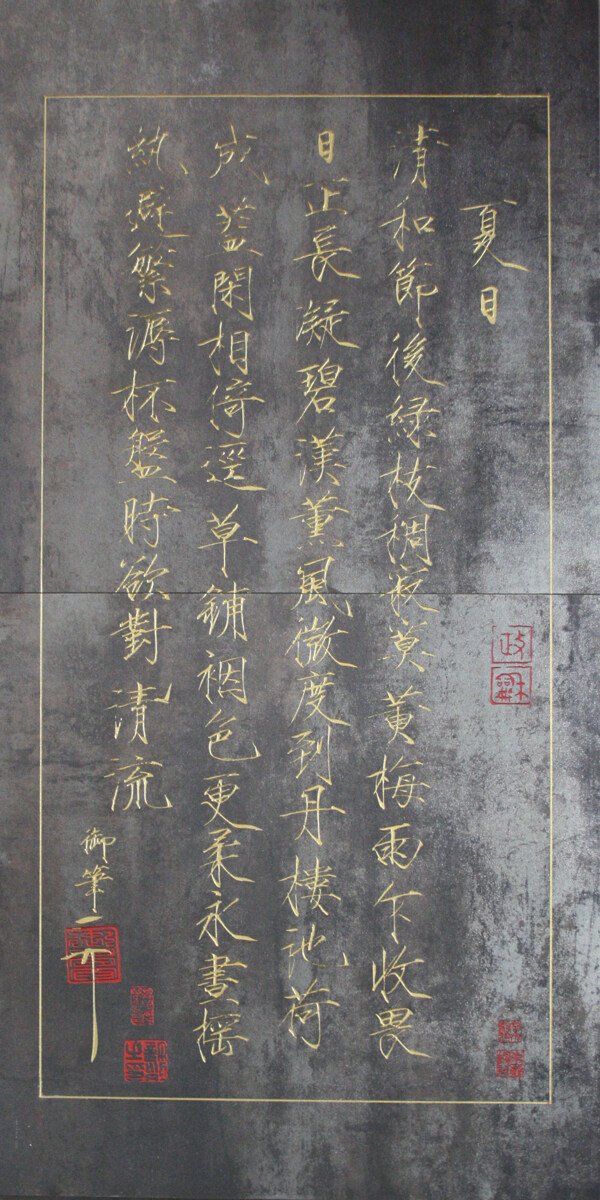 夏日
清和節後綠枝稠寂莫黃梅雨乍收畏
日正長凝碧漢薰風微度到丹樓池荷
成蓋閑相倚逕草鋪裀色更柔永晝搖
紈避繁溽杯盤時欲對清流
御筆
政
龢